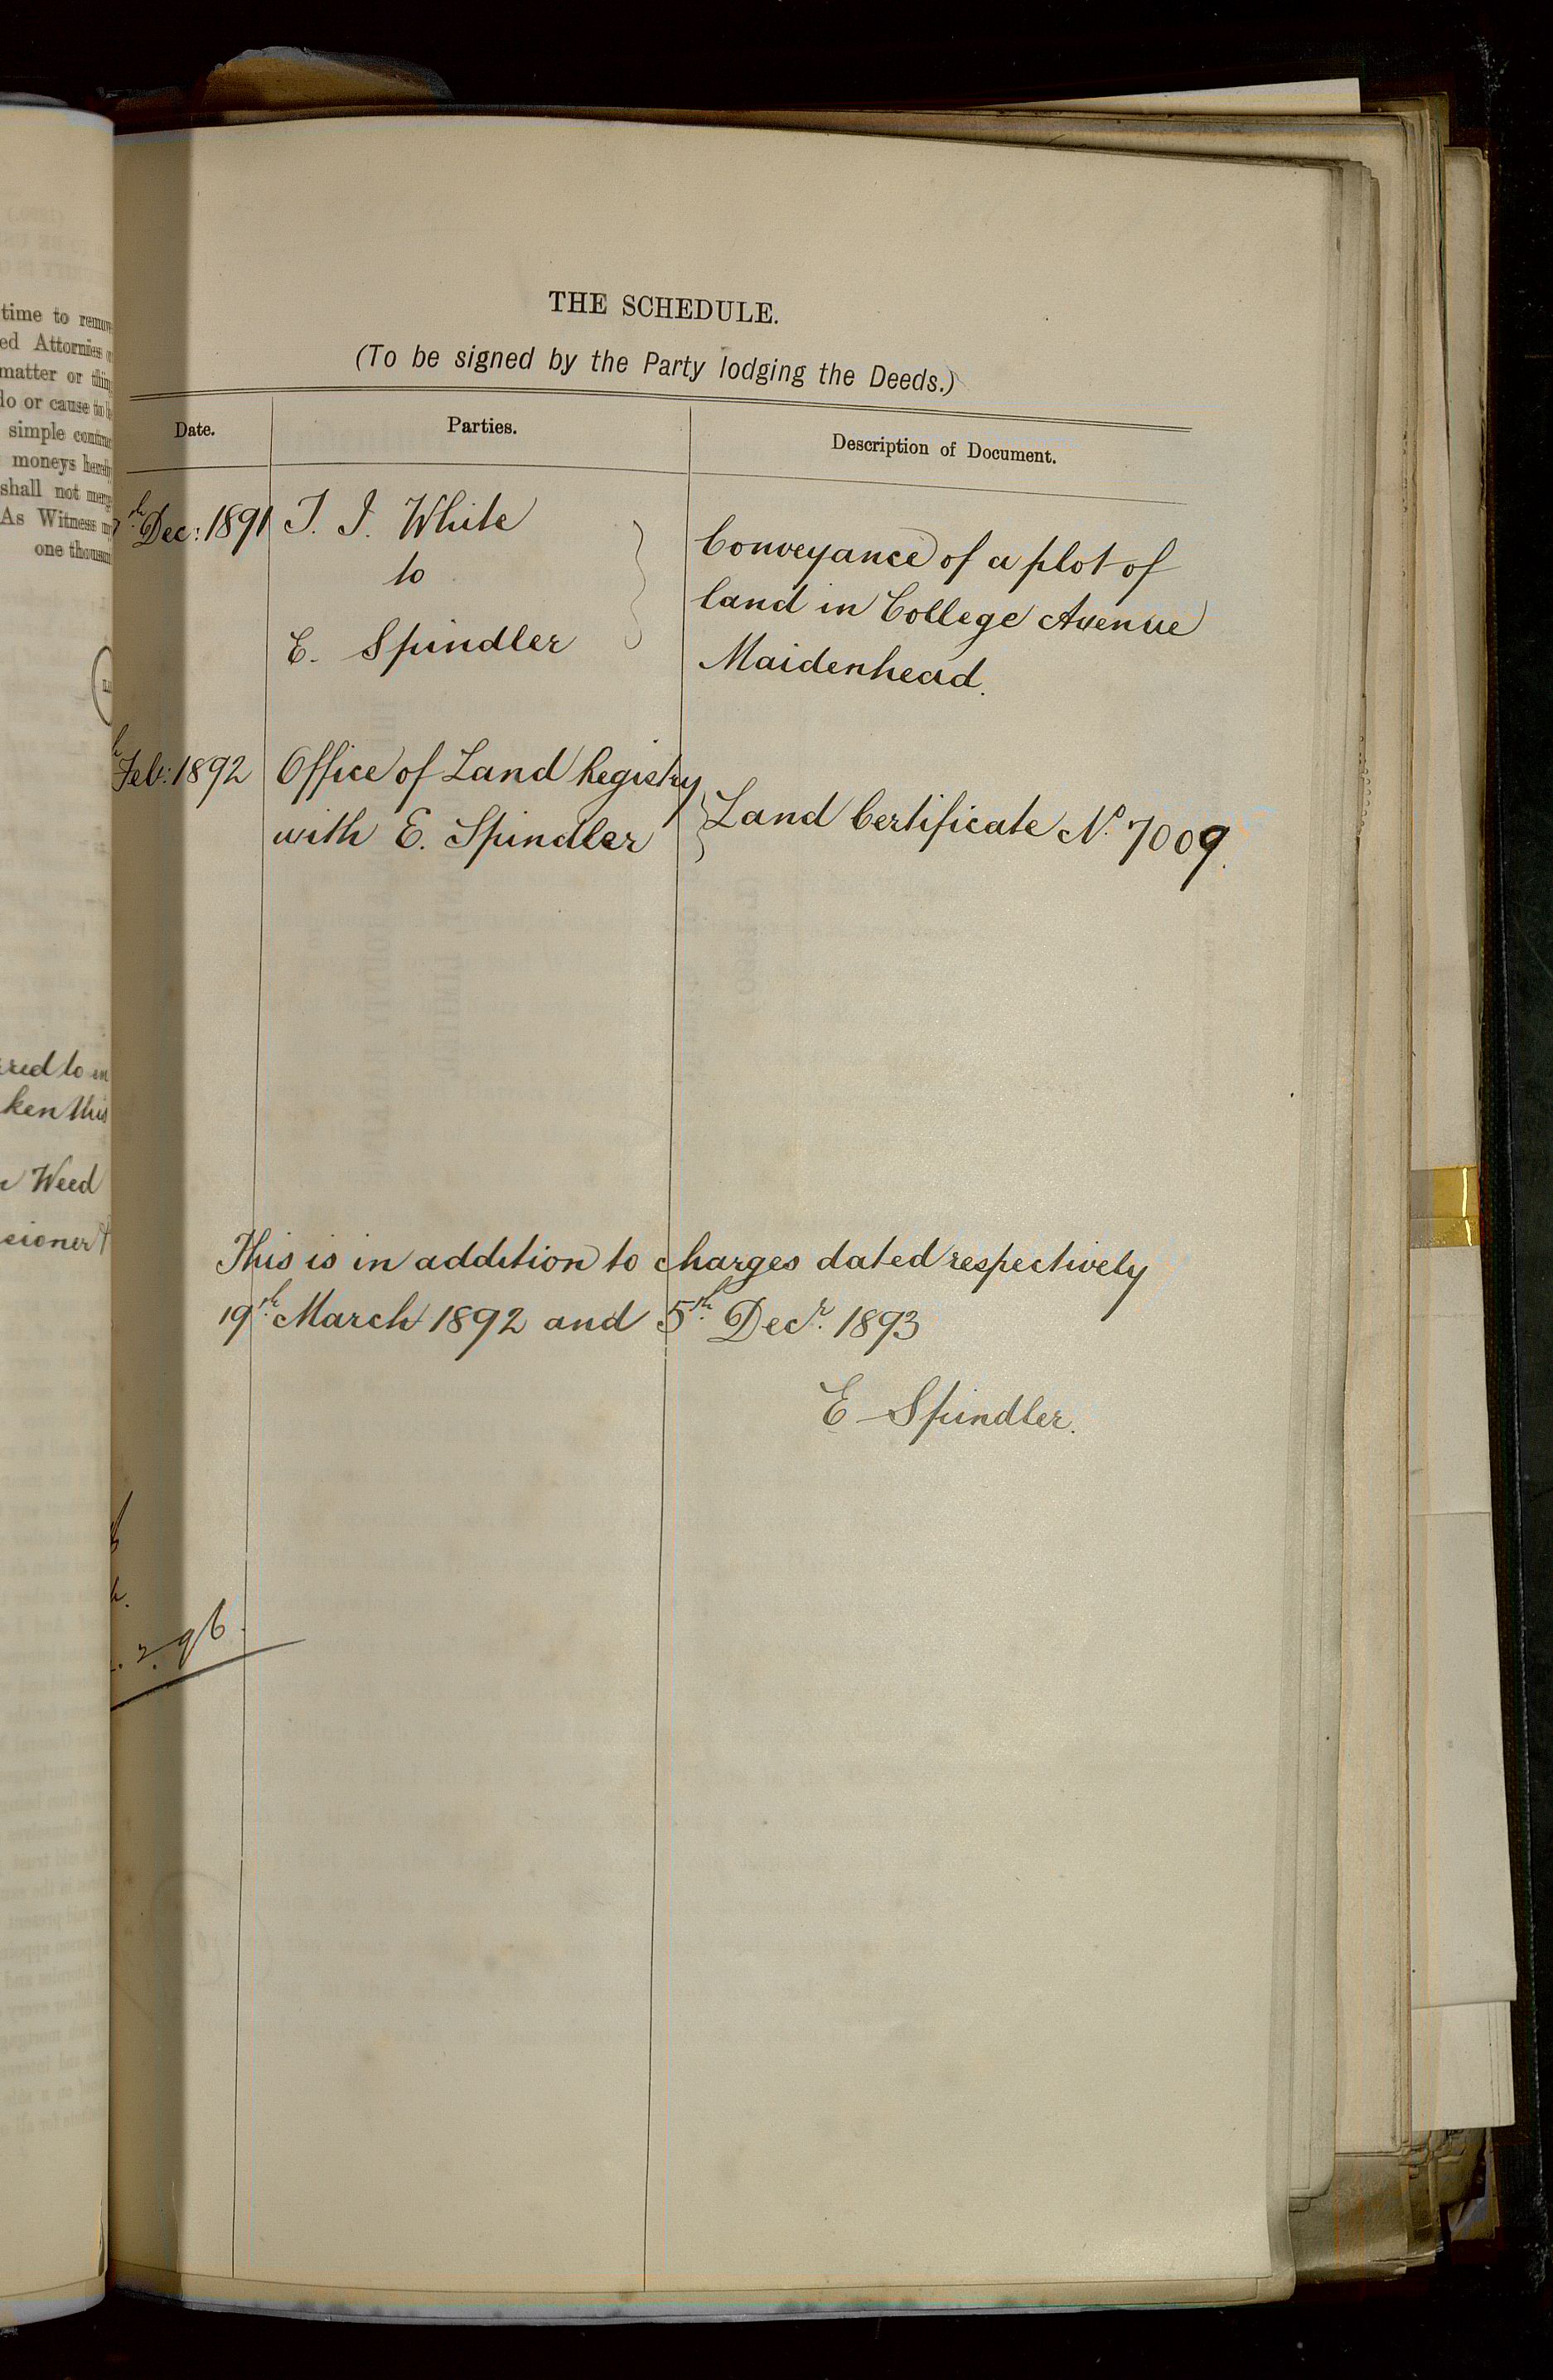 time to remov
ed Attornies
matter or thing
do or cause to
simple
moneys
shall not merge
As Witness
one thousand
red to in
ken this
Weed
sioner
THE SCHEDULE.
(To be signed by the Party lodging the Deeds.)
Date. Parties. Description of Document.
th Dec: 1891 T. J. White
to
E. Spindler
Conveyance of a plot of
land in College Avenue
Maidenhead.
Feb: 1892 Office of Land Registry
with E. Spindler
Land Certificate No. 7009.
This is in addition to charges dated respectively
19th March 1892 and 5th Decr. 1893
E Spindler.
96.